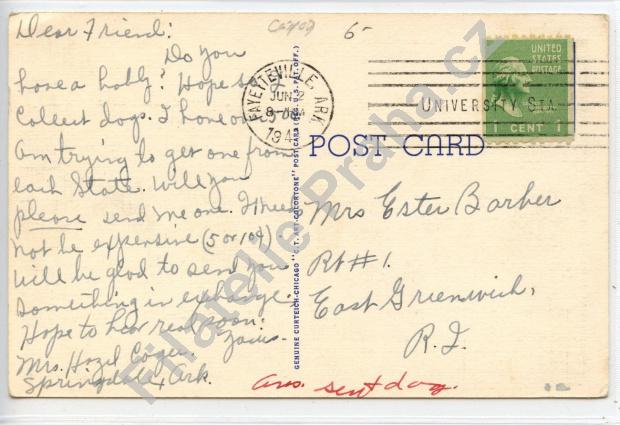 Dear Friend:
Do you
have a hobby? Hope so I
Collect dogs. I have one
Am trying to get one from
each State. Will you
please send me one. I need
not be expensive (5 or 10¢)
Will be glad to send you
something in exchange.
Hope to hear real soon.
Yours.
Mrs. Hazel Coger
Springdale, Ark.
6-
FAYETTEVILLE, ARK.
JUN 2
194
UNIVERSITY STA.
UNITED
STATES
POSTAGE
1 CENT 1
POST CARD
Mrs Ester Barber
Rt #1.
East Greenwich,
R.I.
ans. sent dog.
GENUINE CURTEICH-CHICAGO "C.T. ART-COLORTONE" POST CARD (REG. U.S. PAT. OFF.)
Filatelie Praha.cz